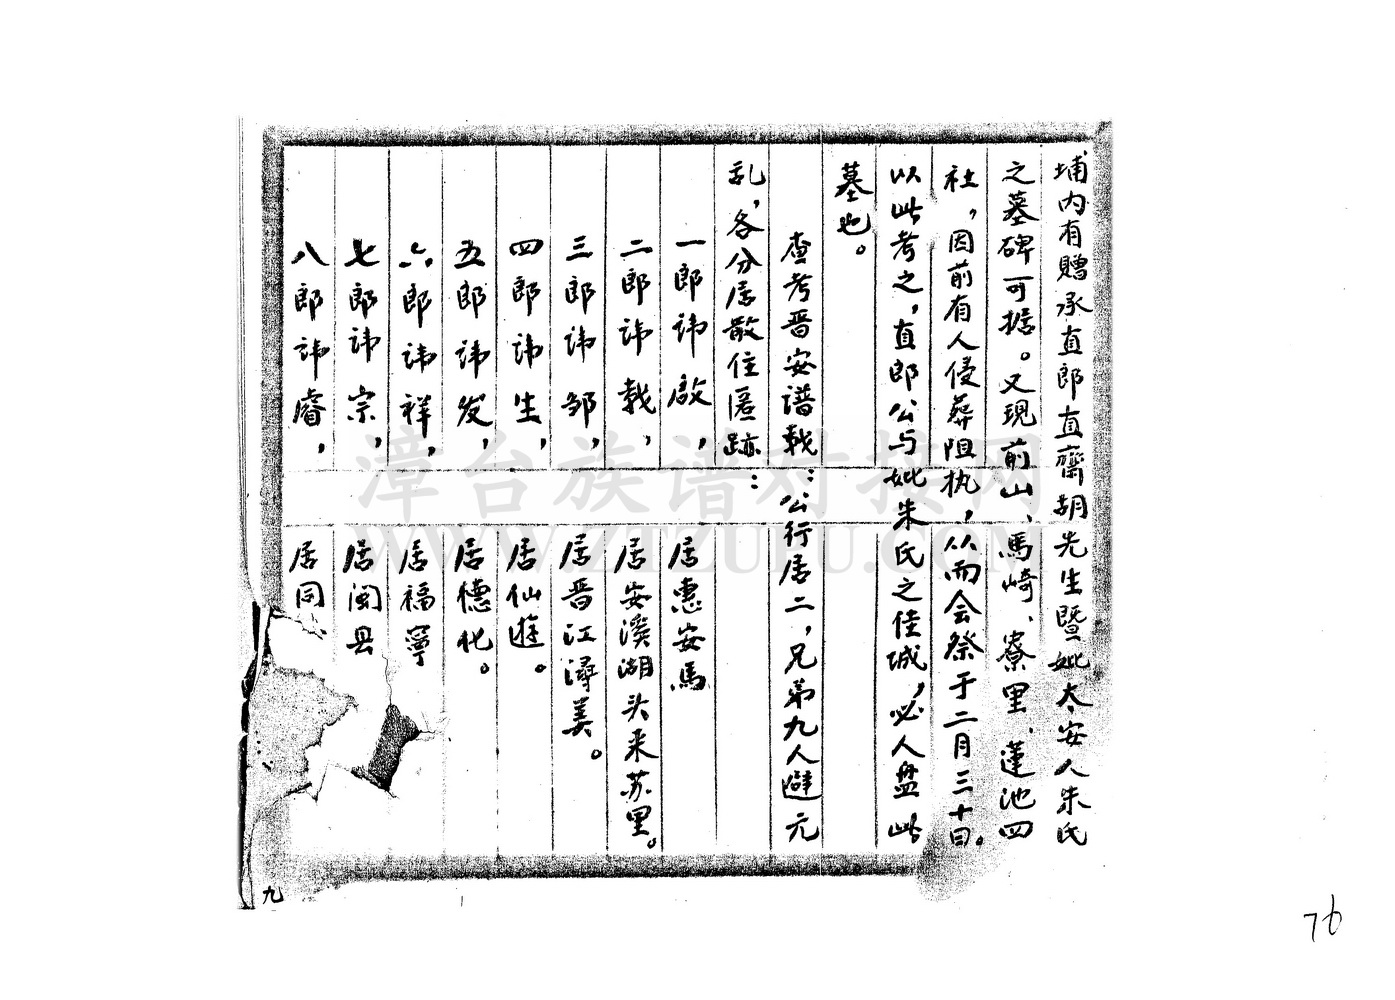 埔内有贈承直郎直齋胡先生暨妣太安人朱氏
之墓碑可据。又現前山、馬崎、寮里、蓮池四
社，因前有人侵葬阻执，从而会祭于二月三十日。
以此考之，直郎公与妣朱氏之佳城，必人盘此
墓也。
查考晋安谱載：公行居二，兄弟九人避元
乱，各分居散住匿跡：
一郎讳啟，居惠安馬
二郎讳載，居安溪湖头来苏里。
三郎讳邹，居晋江潯美。
四郎讳生，居仙遊。
五郎讳发，居德化。
六郎讳祥，居福寧
七郎讳宗，居闽县
八郎讳睿，居同
九
76
漳台族谱对接网
WWW.ZTZUPU.COM